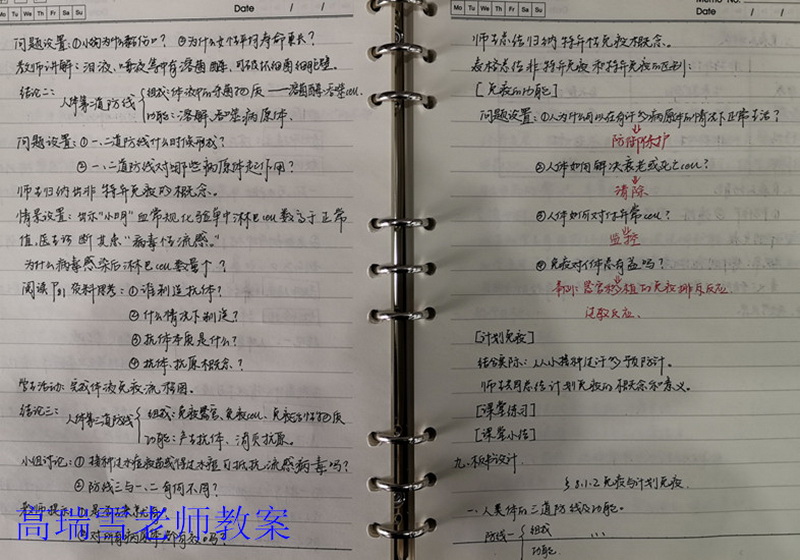 Date / /
Mo Tu We Th Fr Sa Su
问题设置:①小狗为什么舔伤口? ②为什么女个平均寿命更长?
教师讲解:泪液、唾液等中有溶菌酶,可破坏细菌细胞壁。
结论二:
人体第二道防线
组成:体液中的杀菌物质——溶菌酶、吞噬cell.
功能:溶解、吞噬病原体.
问题设置:①一、二道防线什么时候形成?
②一、二道防线对哪些病原体起作用?
师生归纳出非特异免疫的概念。
情景设置:出示"小明"血常规化验单中淋巴cell数高于正常
值,医生诊断其患"病毒性流感。"
为什么病毒感染后淋巴cell数量个?
阅读P81资料思考:①谁制造抗体?
②什么情况下制造?
③抗体本质是什么?
④抗体、抗原概念?
学生活动:完成体液免疫流程图。
结论三:
人体第三道防线
组成:免疫器官、免疫cell、免疫活性物质
功能:产生抗体、消灭抗原。
小组讨论:①接种过水痘疫苗或得过水痘可抵抗流感病毒吗?
②防线三与一、二有何不同?
高瑞雪老师教案
Memo No.
Date / /
Mo Tu We Th Fr Sa Su
师生总结归纳特异性免疫概念。
表格总结非特异免疫和特异免疫的区别:
[免疫的功能]
问题设置:①人为什么可以在有许多病原体的情况下正常生活?
防御保护
②人体如何解决衰老或死亡cell?
清除
③人体如何对付异常cell?
监控
④免疫对人体总有益吗?
举例:器官移植的免疫排斥反应.
过敏反应.
[计划免疫]
结合实际:从小接种过许多预防针。
师生共同总结计划免疫的概念和意义。
[课堂练习]
[课堂小结]
九、板书设计.
§8.1.2 免疫与计划免疫.
一、人类体的三道防线及功能。
防线一
组成
...
功能.